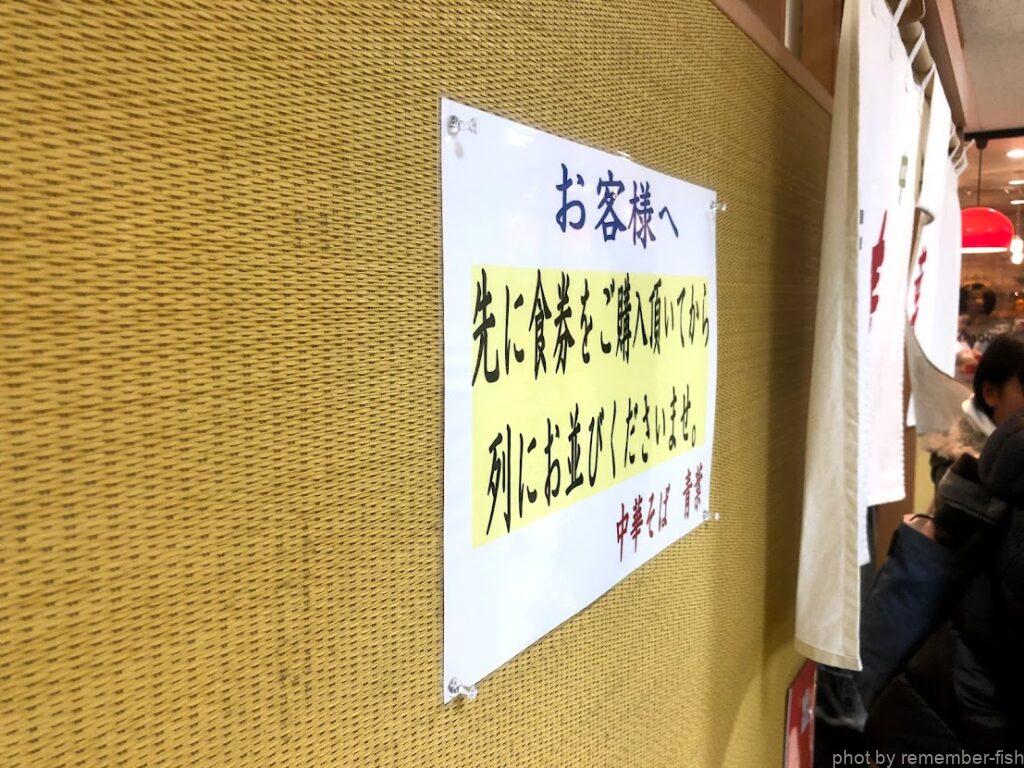 お客様へ
先に食券をご購入頂いてから
列にお並びくださいませ。
中華そば 青葉
phot by remember-fish